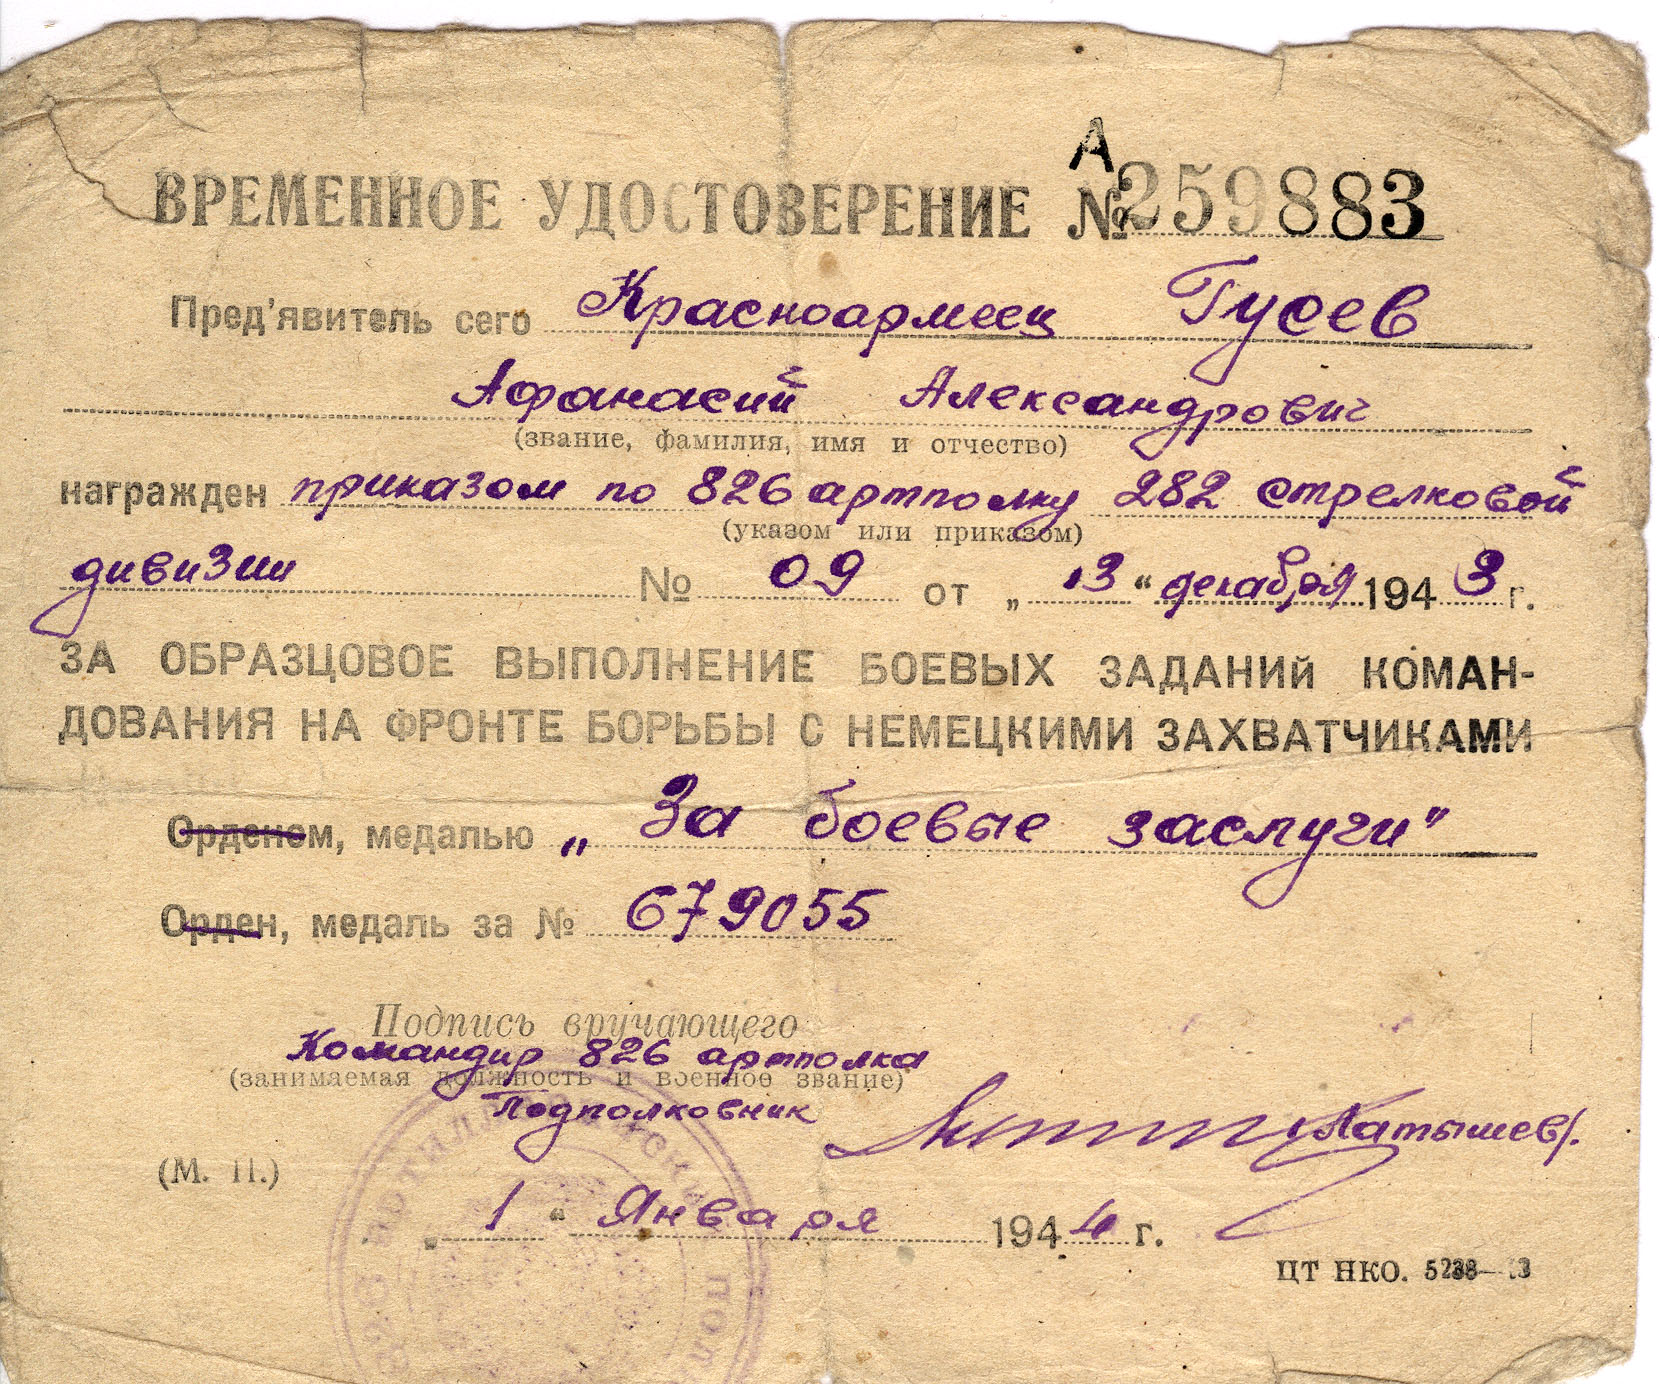 А
ВРЕМЕННОЕ УДОСТОВЕРЕНИЕ № 259883
Пред'явитель сего Красноармеец Гусев
Афанасий Александрович
(звание, фамилия, имя и отчество)
награжден приказом по 826 артполку 282 стрелковой
(указом или приказом)
дивизии № 09 от „13“ декабря 1943 г.
ЗА ОБРАЗЦОВОЕ ВЫПОЛНЕНИЕ БОЕВЫХ ЗАДАНИЙ КОМАН-
ДОВАНИЯ НА ФРОНТЕ БОРЬБЫ С НЕМЕЦКИМИ ЗАХВАТЧИКАМИ
Орденом, медалью „За боевые заслуги"
Орден, медаль за № 679055
Подпись вручающего
Командир 826 артполка
(занимаемая должность и военное звание)
Подполковник /Латышев/.
(М. П.)
„1“ Января 1944 г.
ЦТ НКО.
АРТИЛЛЕРИЙСКИЙ ПОЛК